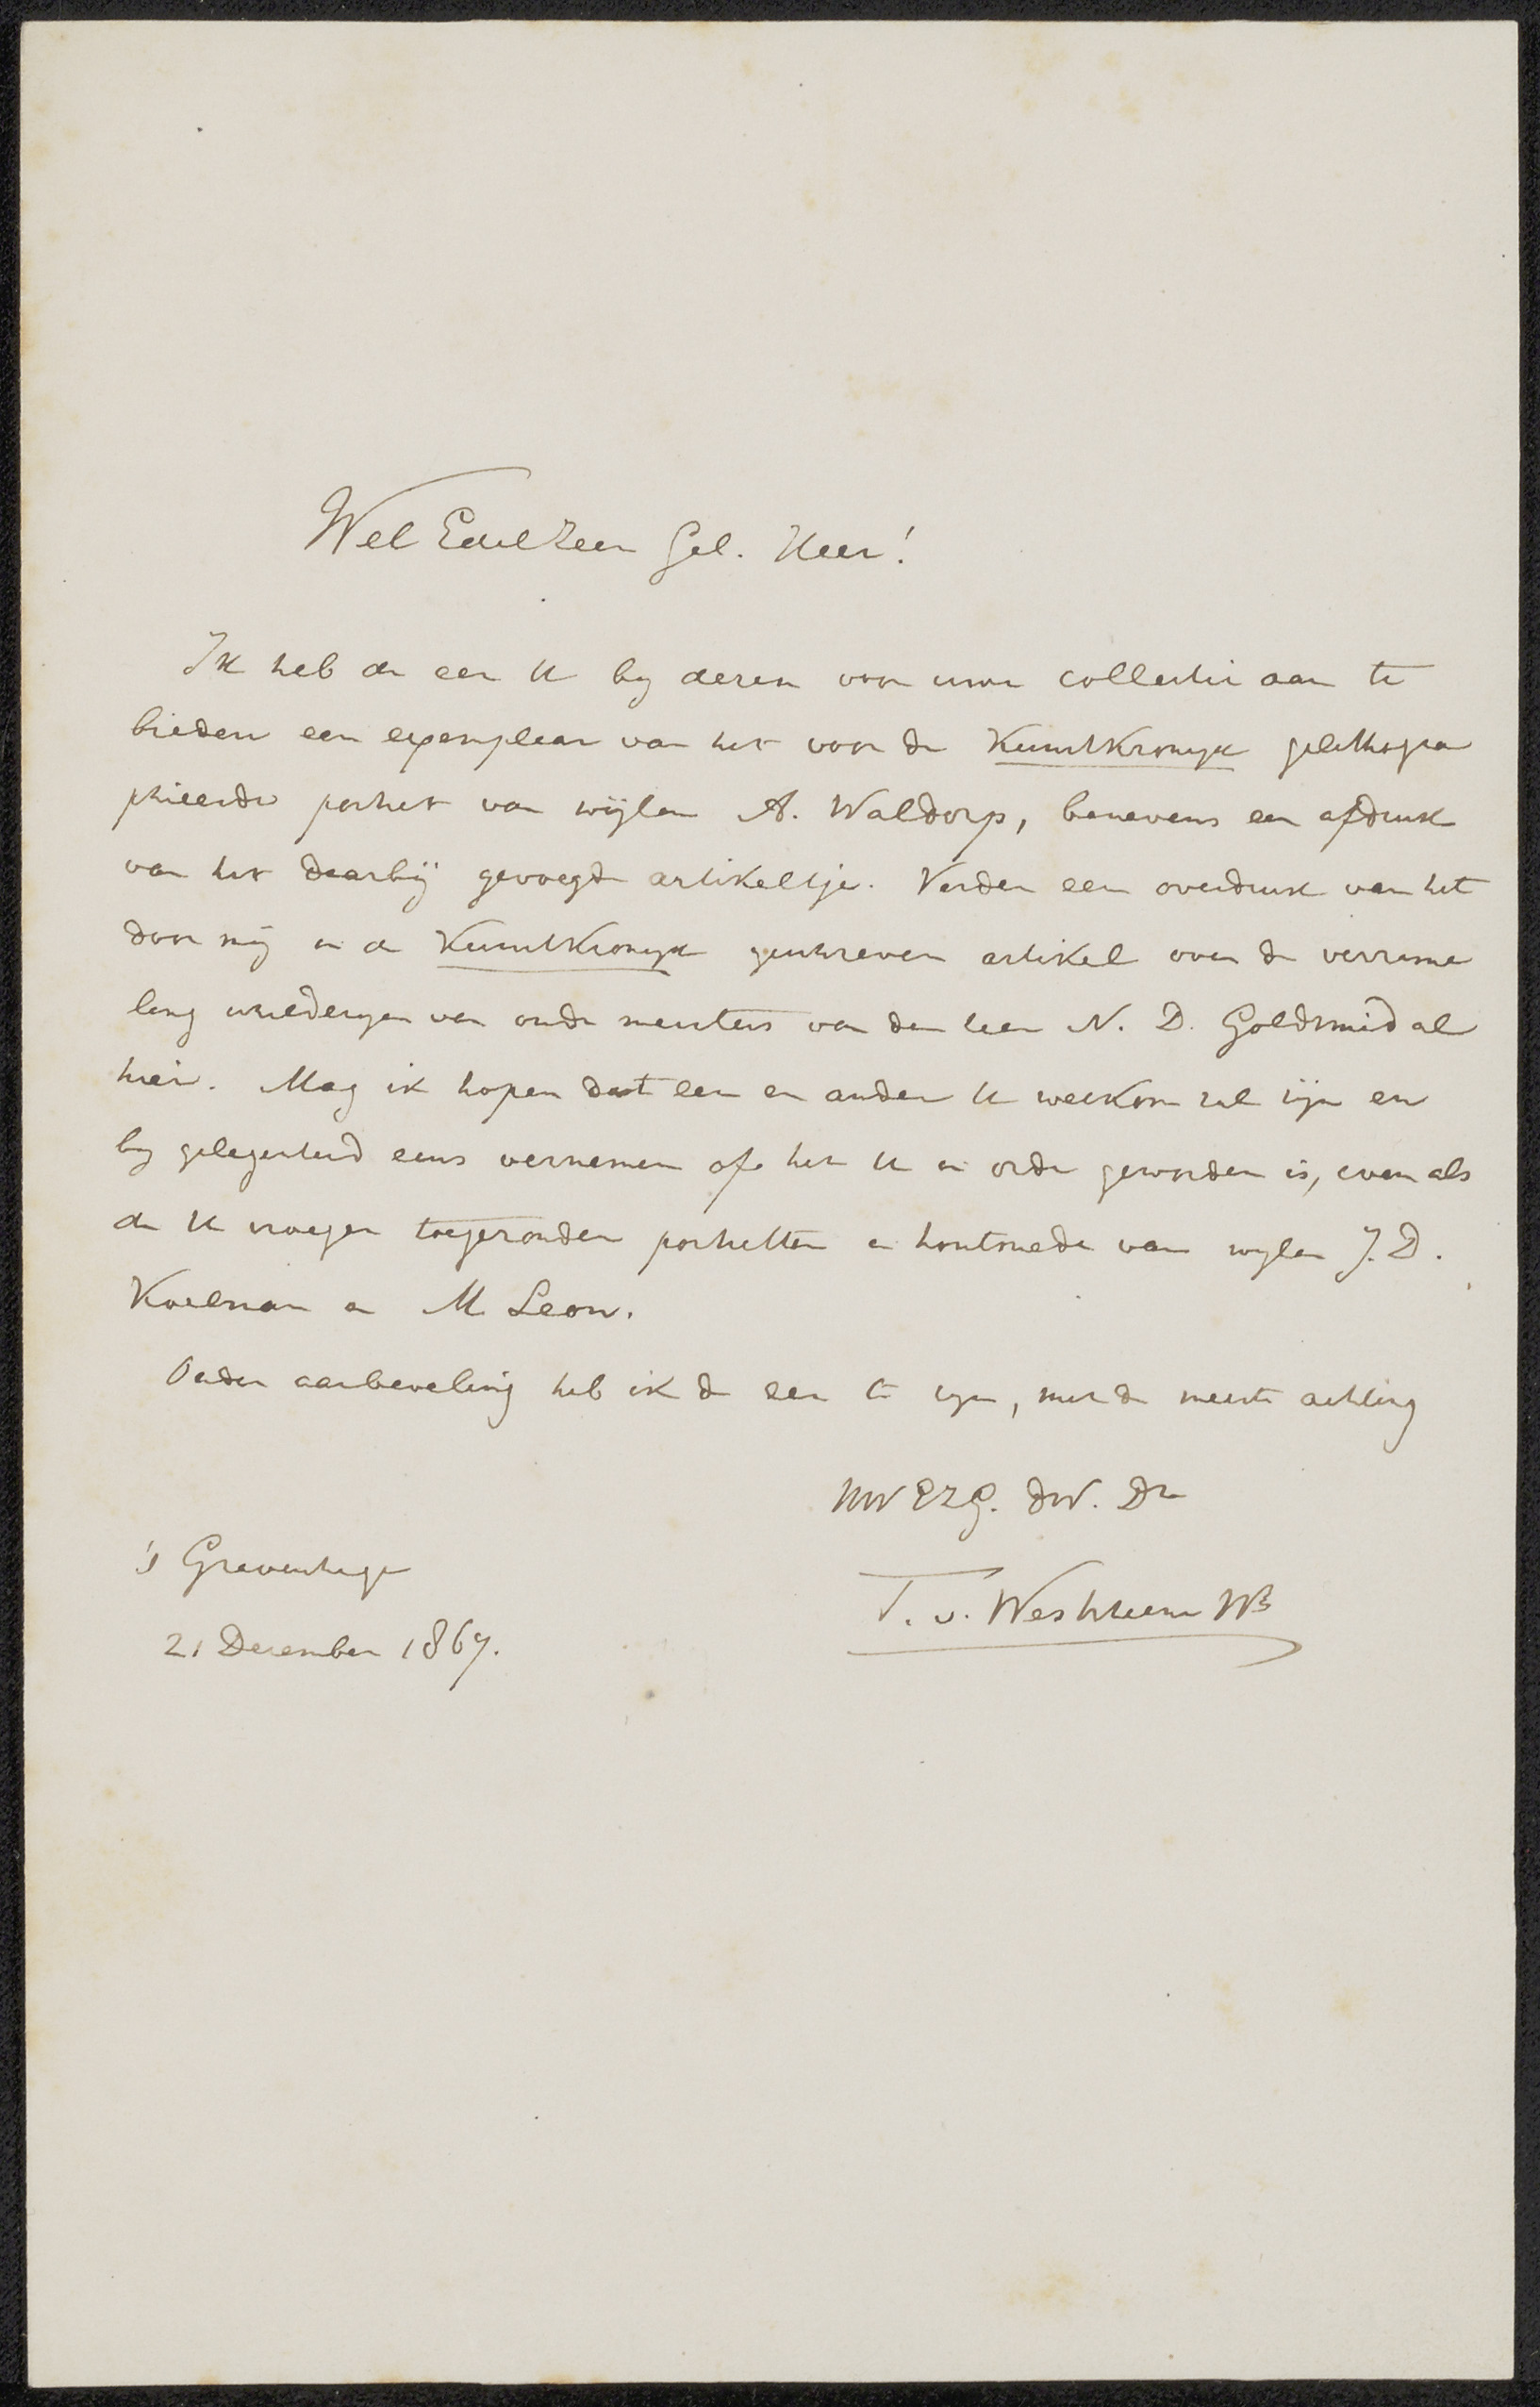 Wel Edel Zeer Gel. Heer!
Ik heb de eer U by dezen voor uwe collectie aan te
bieden een exemplaar van het voor de Kunstkronyk gelithogra
phieerde portret van wijlen A. Waldorp, benevens een afdruk
van het daarbij gevoegde artikeltje. Verder een overdruk van het
door mij in de Kunstkronyk geschreven artikel over de verzame
ling schilderyen van oude meesters van den heer N. D. Goldsmid al
hier. Mag ik hopen dat een en ander U welkom zal zijn en
by gelegenheid eens vernemen of het U in orde geworden is, even als
de U vroeger toegezonden portretten in houtsnede van wylen J. D.
Koelman en M Leon.
Onder aanbeveling heb ik de eer te zyn, met de meeste achting
UWEZG. dW. Dr
T. v. Westrheene Wz
's Gravenhage
21 December 1867.